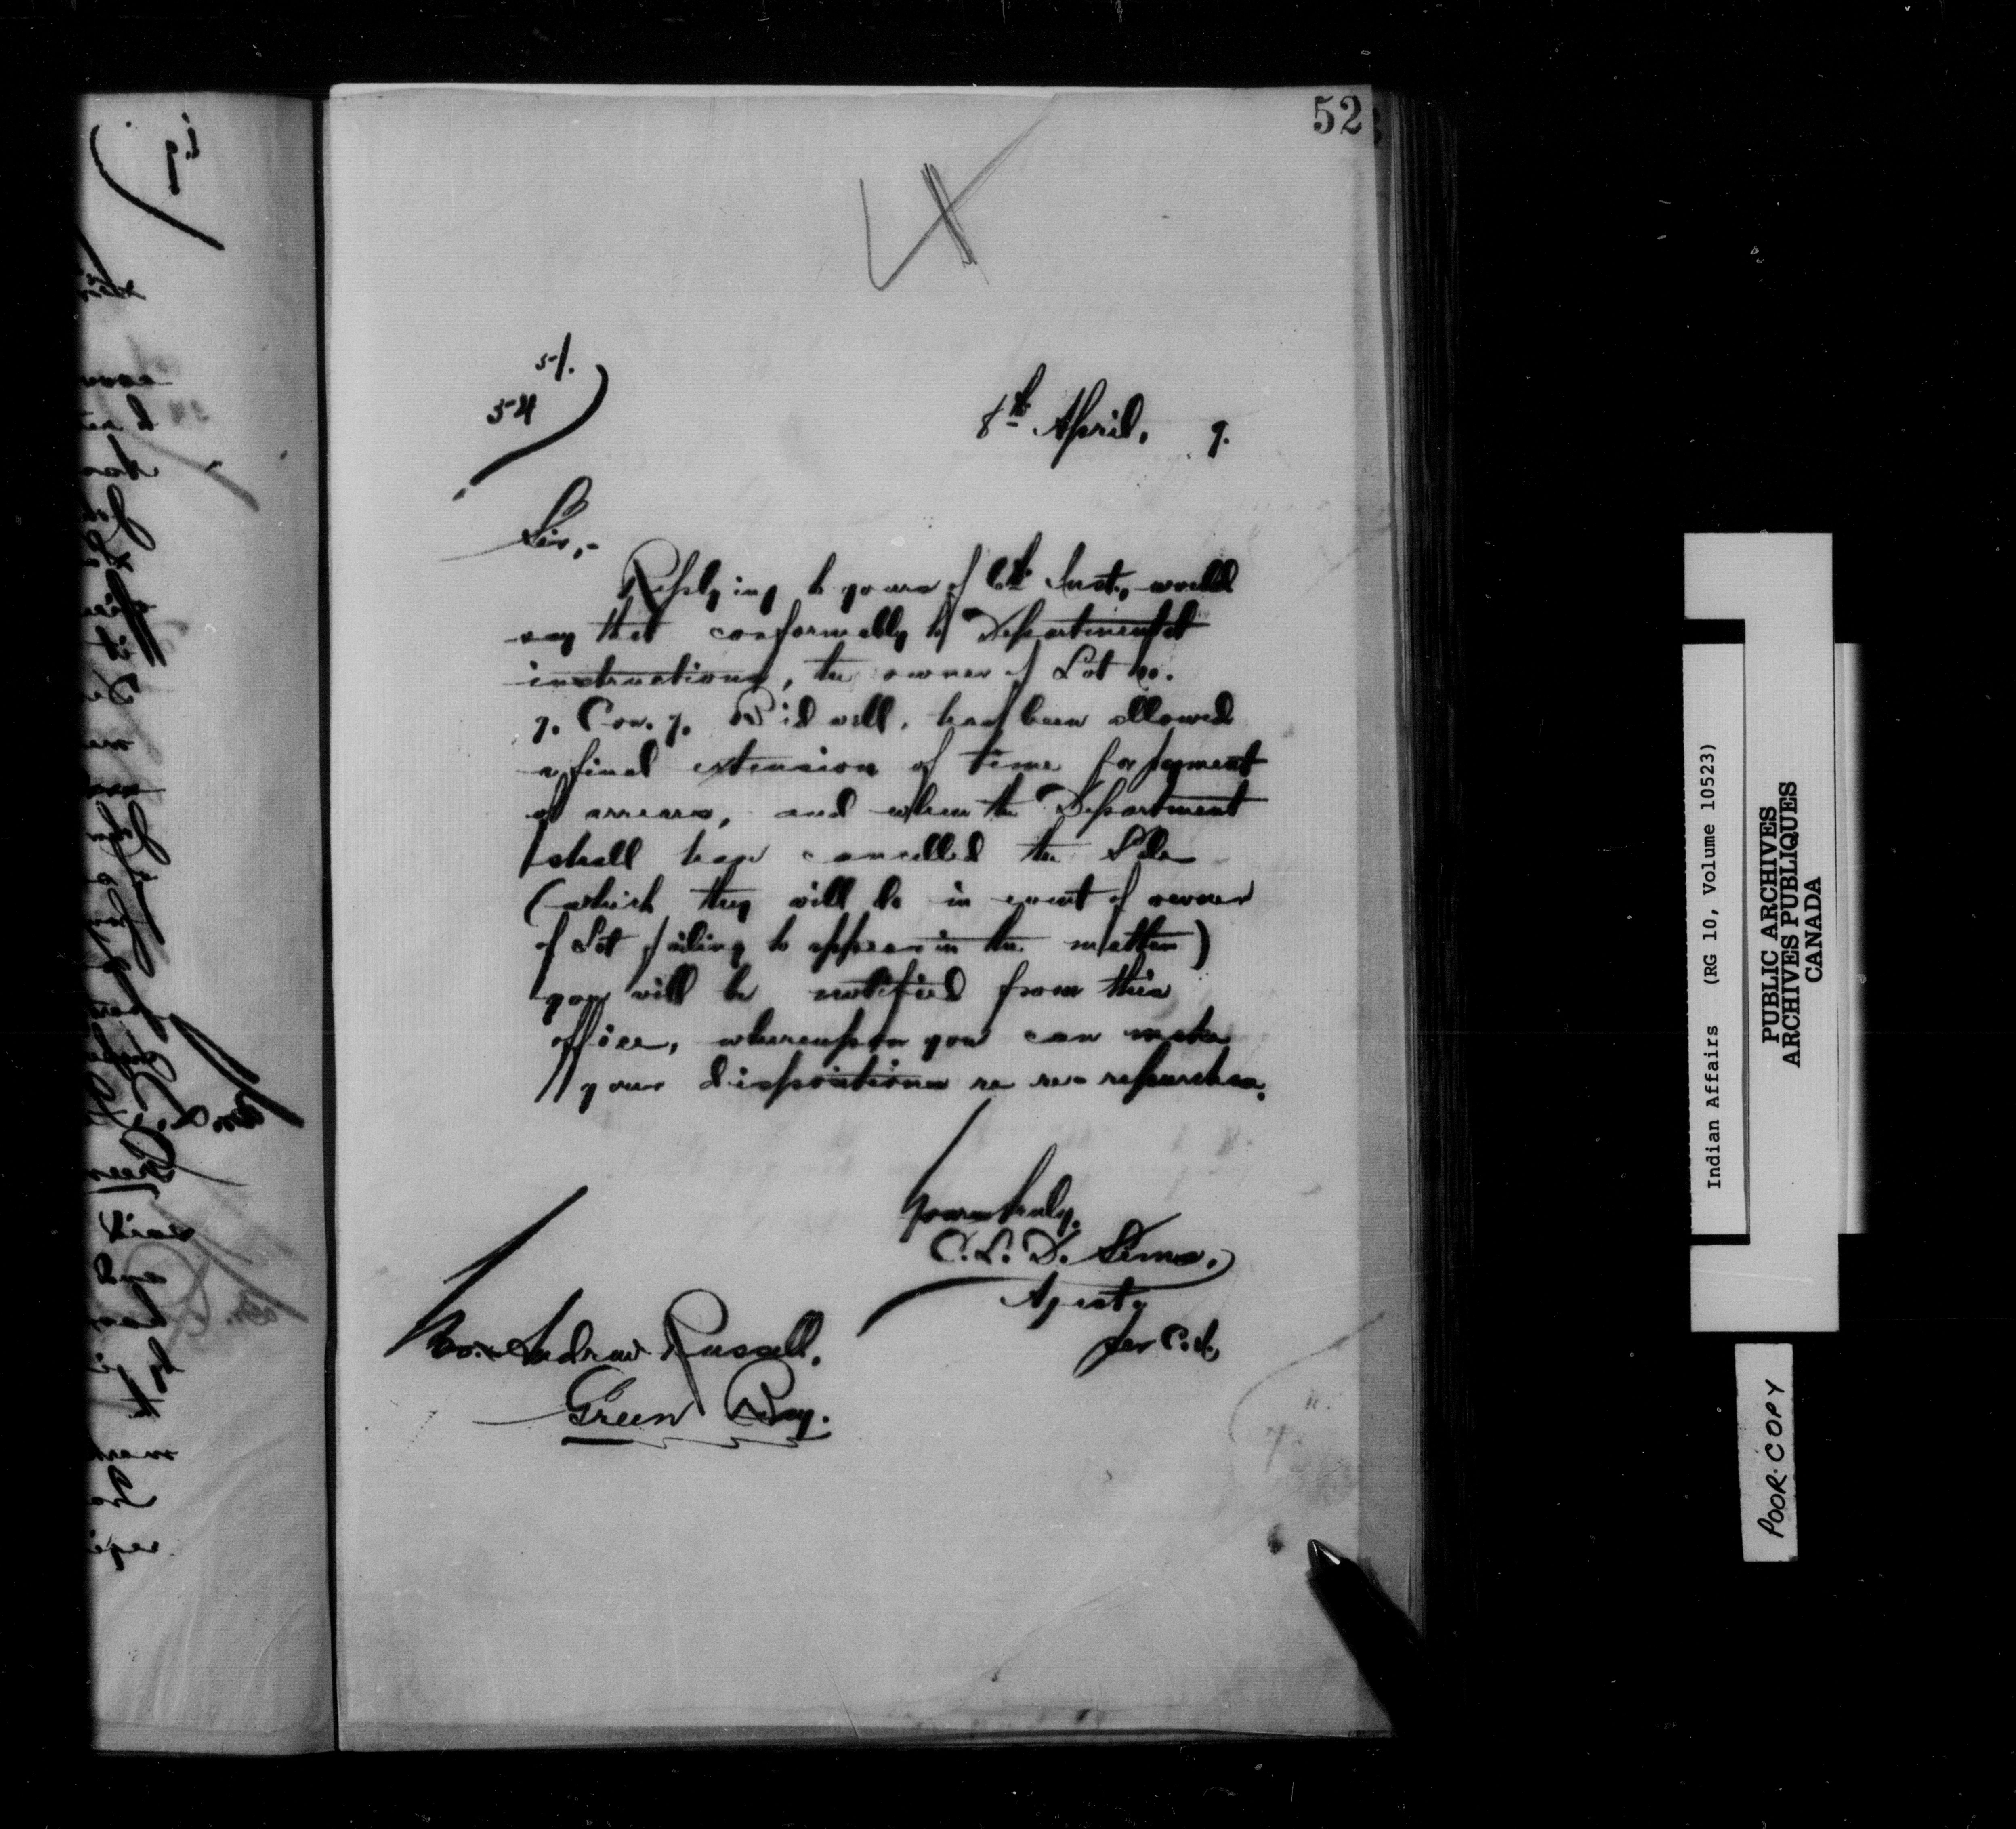 52
51.
54
8th April, 9.
Sir,-
Replying to yours of 6th Inst., would
say that conformably to Departmental
instructions, the owner of Lot No.
7. Con. 7. Bidwell, has been allowed
a final extension of time for payment
of arrears, and when the Department
shall have cancelled the Sale
(which they will do in event of owner
of Lot failing to appear in the matter)
you will be notified from this
office, whereupon you can make
your dispositions re re-repurchase.
Yours truly,
C. L. D. Sims,
Agent,
per C.S.
Mr. Andrew Russell,
Green Bay.
Indian Affairs (RG 10, Volume 10523)
PUBLIC ARCHIVES
ARCHIVES PUBLIQUES
CANADA
POOR COPY